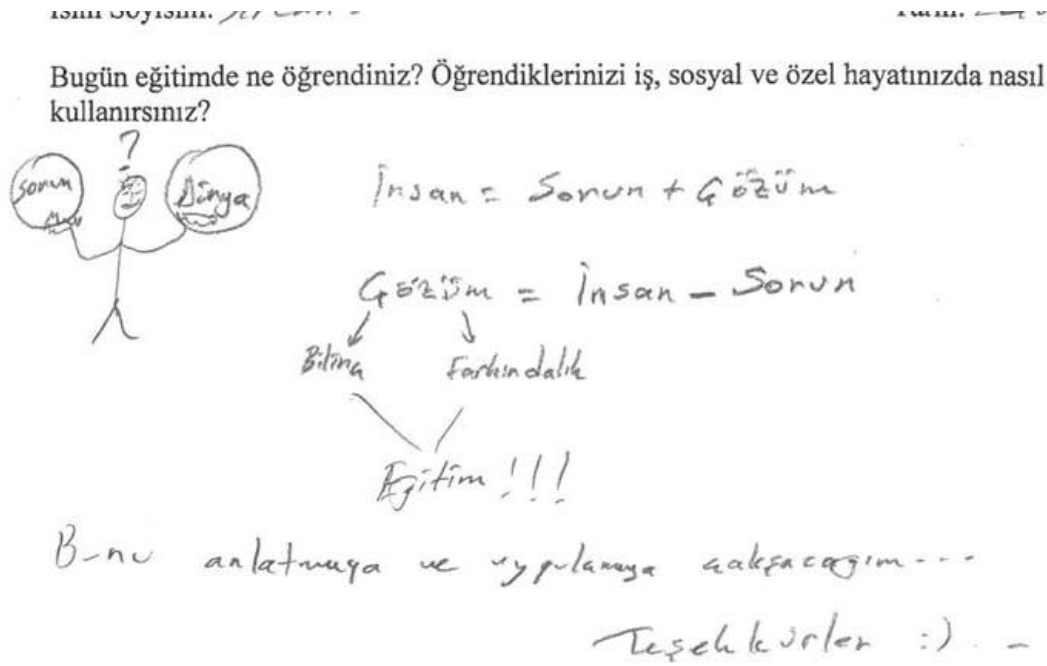 İsmi Soyisim:
Bugün eğitimde ne öğrendiniz? Öğrendiklerinizi iş, sosyal ve özel hayatınızda nasıl
kullanırsınız?
?
sorun
Dünya
İnsan = Sorun + Çözüm
Çözüm = İnsan - Sorun
Bilinç Farkındalık
Eğitim !!!
Bunu anlatmaya ve uygulamaya çalışacağım...
Teşekkürler :)